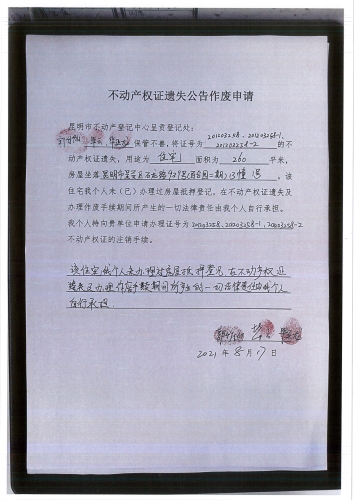 不动产权证遗失公告作废申请
昆明市不动产登记中心呈贡登记处：
保管不善，将证号为 201203258、201203258-1、201203258-2 的不
动产权证遗失，用途为 住宅 面积为 260 平米，
房屋坐落 昆明市呈贡区石龙路929号（百合园二期）13幢 号，该
住宅我个人未（已）办理过房屋抵押登记，在不动产权遗失及
办理作废手续期间所产生的一切法律责任由我个人自行承担。
我个人特向贵单位申请办理证号为 201203258、201203258-1、201203258-2
不动产权证的注销手续。
该住宅我个人未办理过房屋抵押登记，在不动产权证
遗失及办理作废手续期间所产生的一切法律责任由我个人
自行承担。
2021 年 8 月 17 日